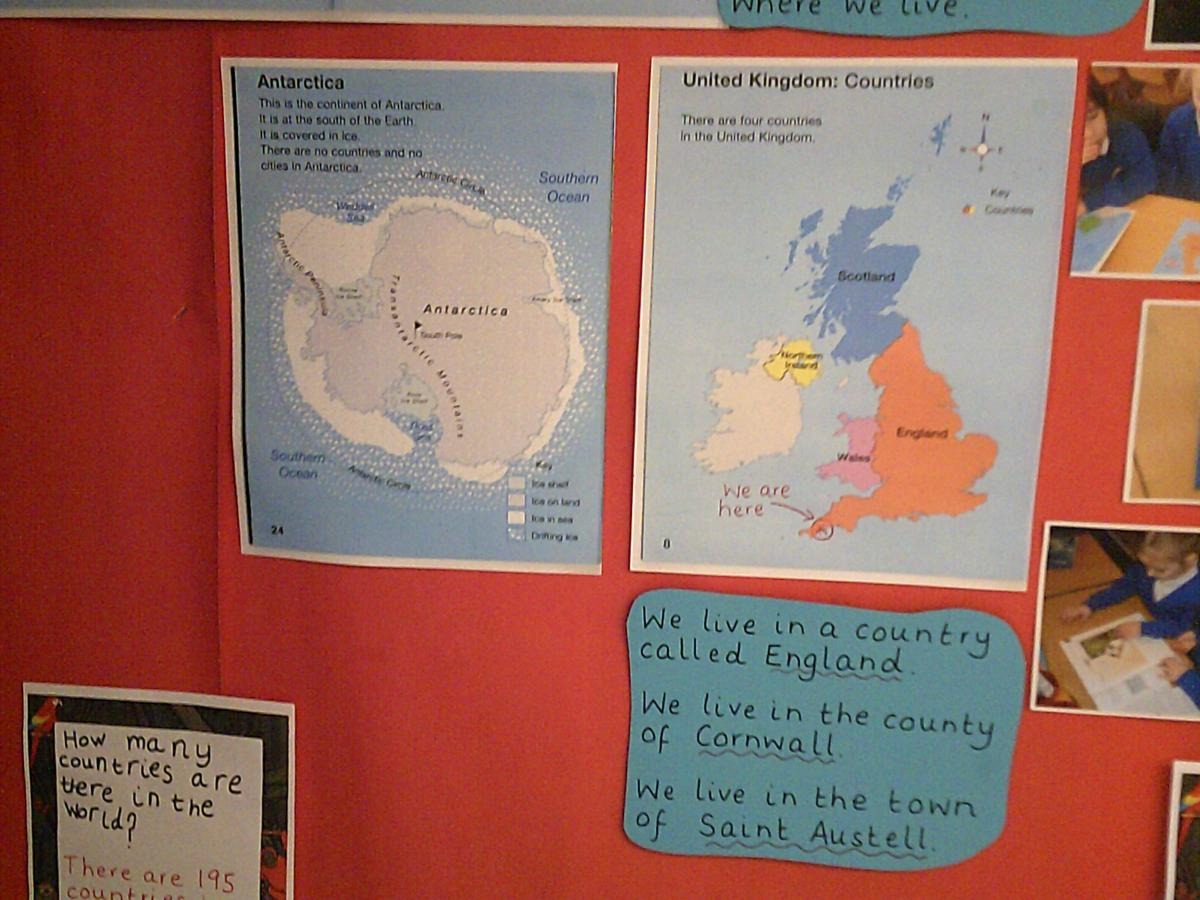 where we live.
Antarctica
This is the continent of Antarctica.
It is at the south of the Earth.
It is covered in Ice.
There are no countries and no
cities in Antarctica.
Antarctic Circle
Southern
Ocean
Weddell
Sea
Antarctic Peninsula
Ronne
Ice Shelf
Transantarctic Mountains
Antarctica
Amery Ice Shelf
South Pole
Ross
Ice Shelf
Ross
Sea
Southern
Ocean
Antarctic Circle
Key
Ice shelf
Ice on land
Ice in sea
Drifting ice
24
United Kingdom: Countries
There are four countries
in the United Kingdom.
N
Key
Countries
Scotland
Northern
Ireland
England
Wales
We are
here
8
We live in a country
called England.
We live in the county
of Cornwall.
We live in the town
of Saint Austell.
How many
countries are
there in the
world?
There are 195
countries